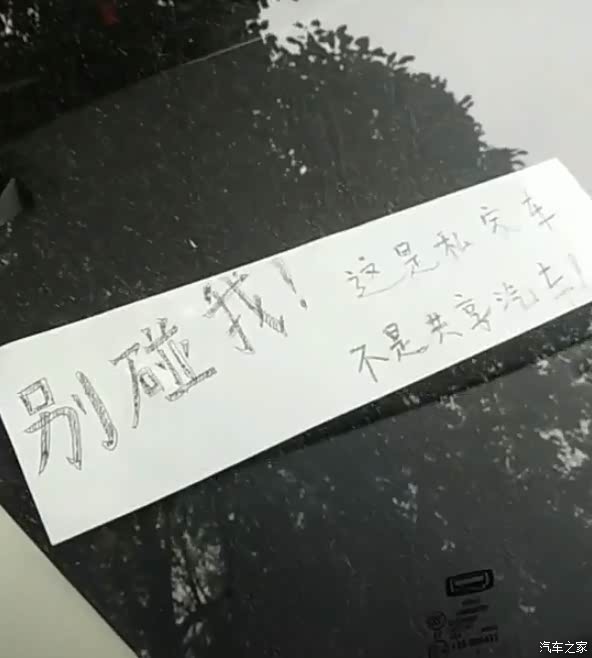 别碰我！
这是私家车
不是共享汽车！
汽车之家